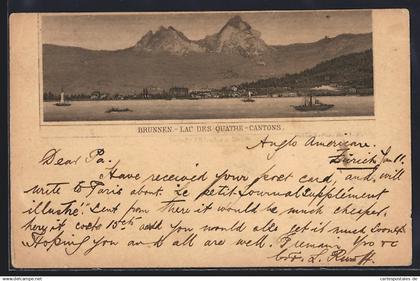 BRUNNEN. - LAC DES QUATRE-CANTONS.
Anglo American.
Zürich Jan 11.
Dear Pa.
Have received your post card, and, will
write to Paris about "Le petit Journal Supplément
illustré." Sent from there it would be much cheaper,
here it costs 15cts and you would also get it much sooner
Hoping you and all are well. I remain Yrs &c